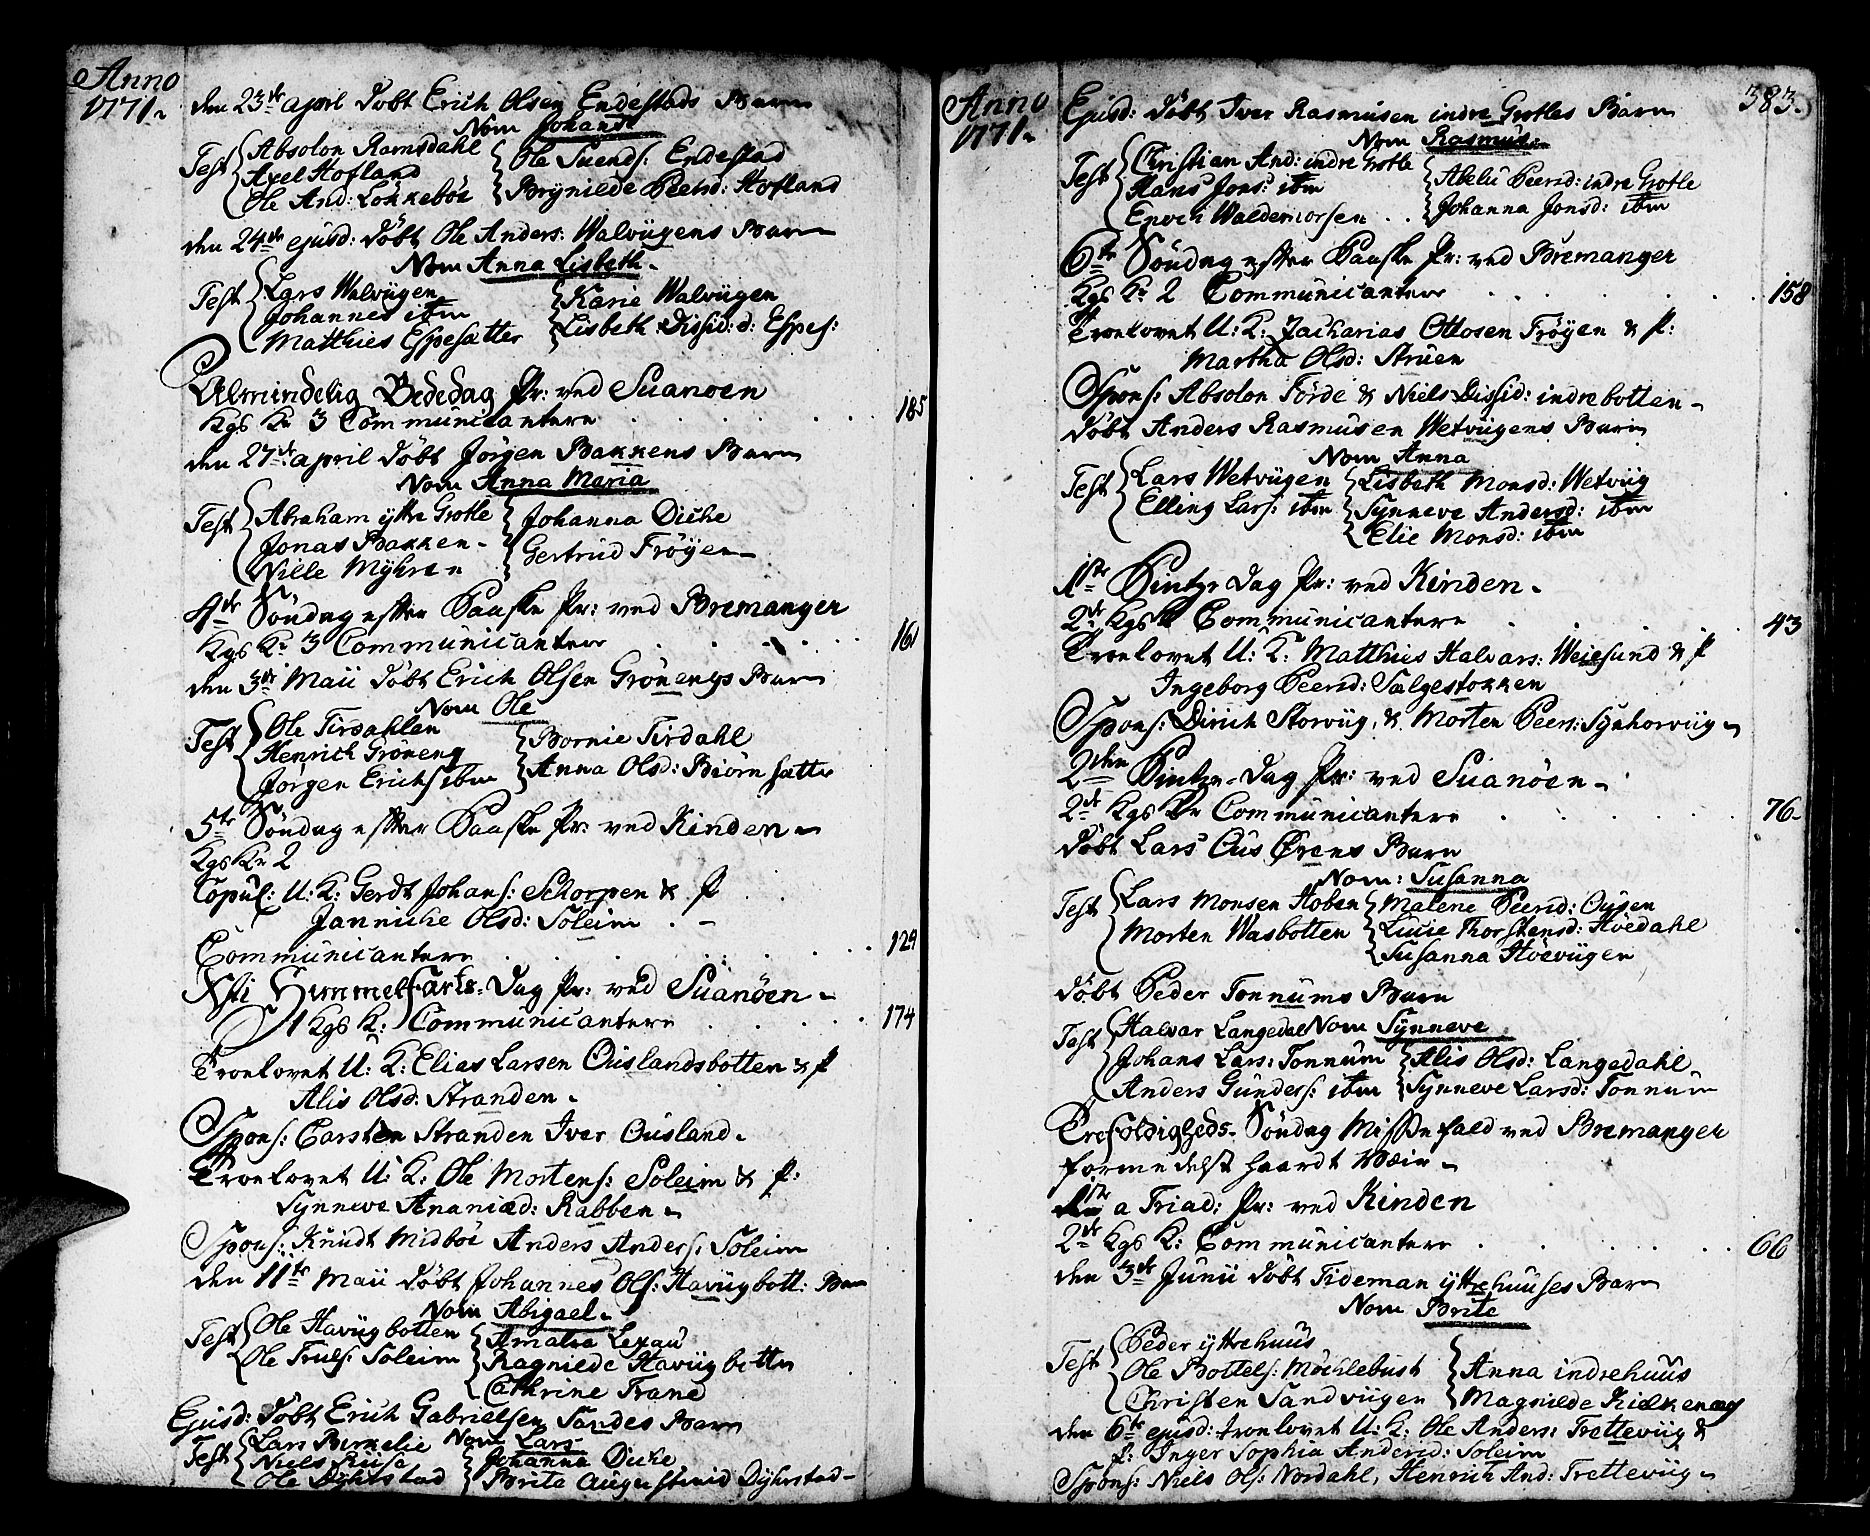 Anno
1771.
den 23de april döbt Erich Olsen Endestads Barn
Nom Johanne
Test Absolon Ramsdahl Ole Suends: Endestad
Axel Hofland
Ole And: Lökkeböe Brynilde Peersd: Hofland
den 24de ejusd: döbt Ole Anders: Walvügens Barn
Nom Anna Lisbeth.
Test Lars Walvügen Karie Walvügen
Johannes ibm
Matthies Espesætter Lisbeth Dissid: d: Espes:
Almindelig Bededag Pr: ved Suanoen
Kgs Kr 3 Communicantere 185
den 27de april döbt Jörgen Bakkens Barn
Nom Anna Maria
Test Abraham yttre Grotle Johanna Diche
Jonas Bakken
Nille Myhren Gertrud Fröyen
4de Söndag efter Paaske Pr: ved Bremanger
Kgs Kr 3 Communicantere 161
den 3de Maii döbt Erich Olsen Grönengs Barn
Nom Ole
Test Ole Tirdahlen Bornie Tirdahl
Henrich Gröneng
Jörgen Erichs ibm Anna Olsd: Biörnsætter
5te Söndag efter Paaske Pr: ved Kinden
Kgs Kr 2
Copul: U: K: Gerdt Johans: Schorpen & P
Jannicke Olsd: Soleim
Communicantere 129
Xsti Himmelfarts-Dag Pr: ved Suanöen
1 Kgs K: Communicantere 174
Troelovet U: K: Elias Larsen Ouslandsbotten & P
Alis Olsd: Stranden
Spons: Carsten Stranden Iver Ousland
Troelovet U: K: Ole Mortens: Soleim & P:
Synneve Ananiæd: Rabben
Spons: Knudt Midböe Anders Anders: Soleim
den 11te Maii döbt Johannes Ols: Havügbott: Barn
Nom Abigael
Test Ole Havügbotten Amalia Lexau
Ole Truls: Soleim Ragnilde Havügbotten
Cathrine Trane
Ejusd: döbt Erich Gabrielsen Sandes Barn
Nom Lars
Test Lars Birkelie Johanna Dicke
Niels Huse
Ole Dyhrstad Brite Augustinid Dyhrstad
Anno
1771.
383.
Ejusd: döbt Iver Rasmusen indre Grotles Barn
Nom Rasmus.
Test Christian And: indre Grotle Abelü Peersd: indre Grotle
Hans Jons: ibm
Enoch Waldemorsen Johanna Jonsd: ibm
6te Söndag efter Paaske Pr: ved Bremanger
Kgs Kr 2 Communicantere 158
Troelovet U: K: Zacharias Ottosen Fröyen & P:
Martha Olsd: Struen
Spons: Absolon Förde & Niels Dissid: indrebotten
döbt Anders Rasmusen Wetvügens Barn
Nom Anna
Test Lars Wetvügen Lisbeth Monsd: Wetvüg
Elling Lars: ibm Synneve Andersd: ibm
Elie Monsd: ibm
1ste Pintze Dag Pr: ved Kinden
2de Kgs K Communicantere 43
Troelovet U: K: Matthies Halvars: Weiesund & P
Ingeborg Peersd: Sælgestokken
Spons: Dirich Storvüg, & Morten Peers: Synhorvüg
2den Pintze-Dag Pr: ved Suanöen
2de Kgs Kr Communicantere 76
döbt Lars Ous Ørens Barn
Nom: Susanna
Test Lars Monsen Hoben Malene Peersd: Ousen
Morten Wasbotten Lucie Thorstensd: Høedahl
Susanna Høevügen
döbt Peder Tonnums Barn
Nom Synneve
Test Halvar Langedal
Johans Lars: Tonnum Alis Olsd: Langedahl
Anders Gunders: ibm Synneve Larsd: Tonnum
Trefoldigheds-Söndag Missefald ved Bremanger
formedelst haardt Wæir
1ste a Triad: Pr: ved Kinden
2de Kgs K: Communicantere 66
den 3de Junii döbt Tideman yttrehuuses Barn
Nom Brite
Test Peder yttrehuus
Ole Bottels: Möchlebust Anna indrehuus
Christen Sandvügen Magnilde Kielkenæs
den 6te ejusd: troelovet U: K: Ole Anders: Trettevüg &
P: Inger Sophia Andersd: Soleim
Spons: Niels Ols: Nordahl, Henrich And: Trettevüg